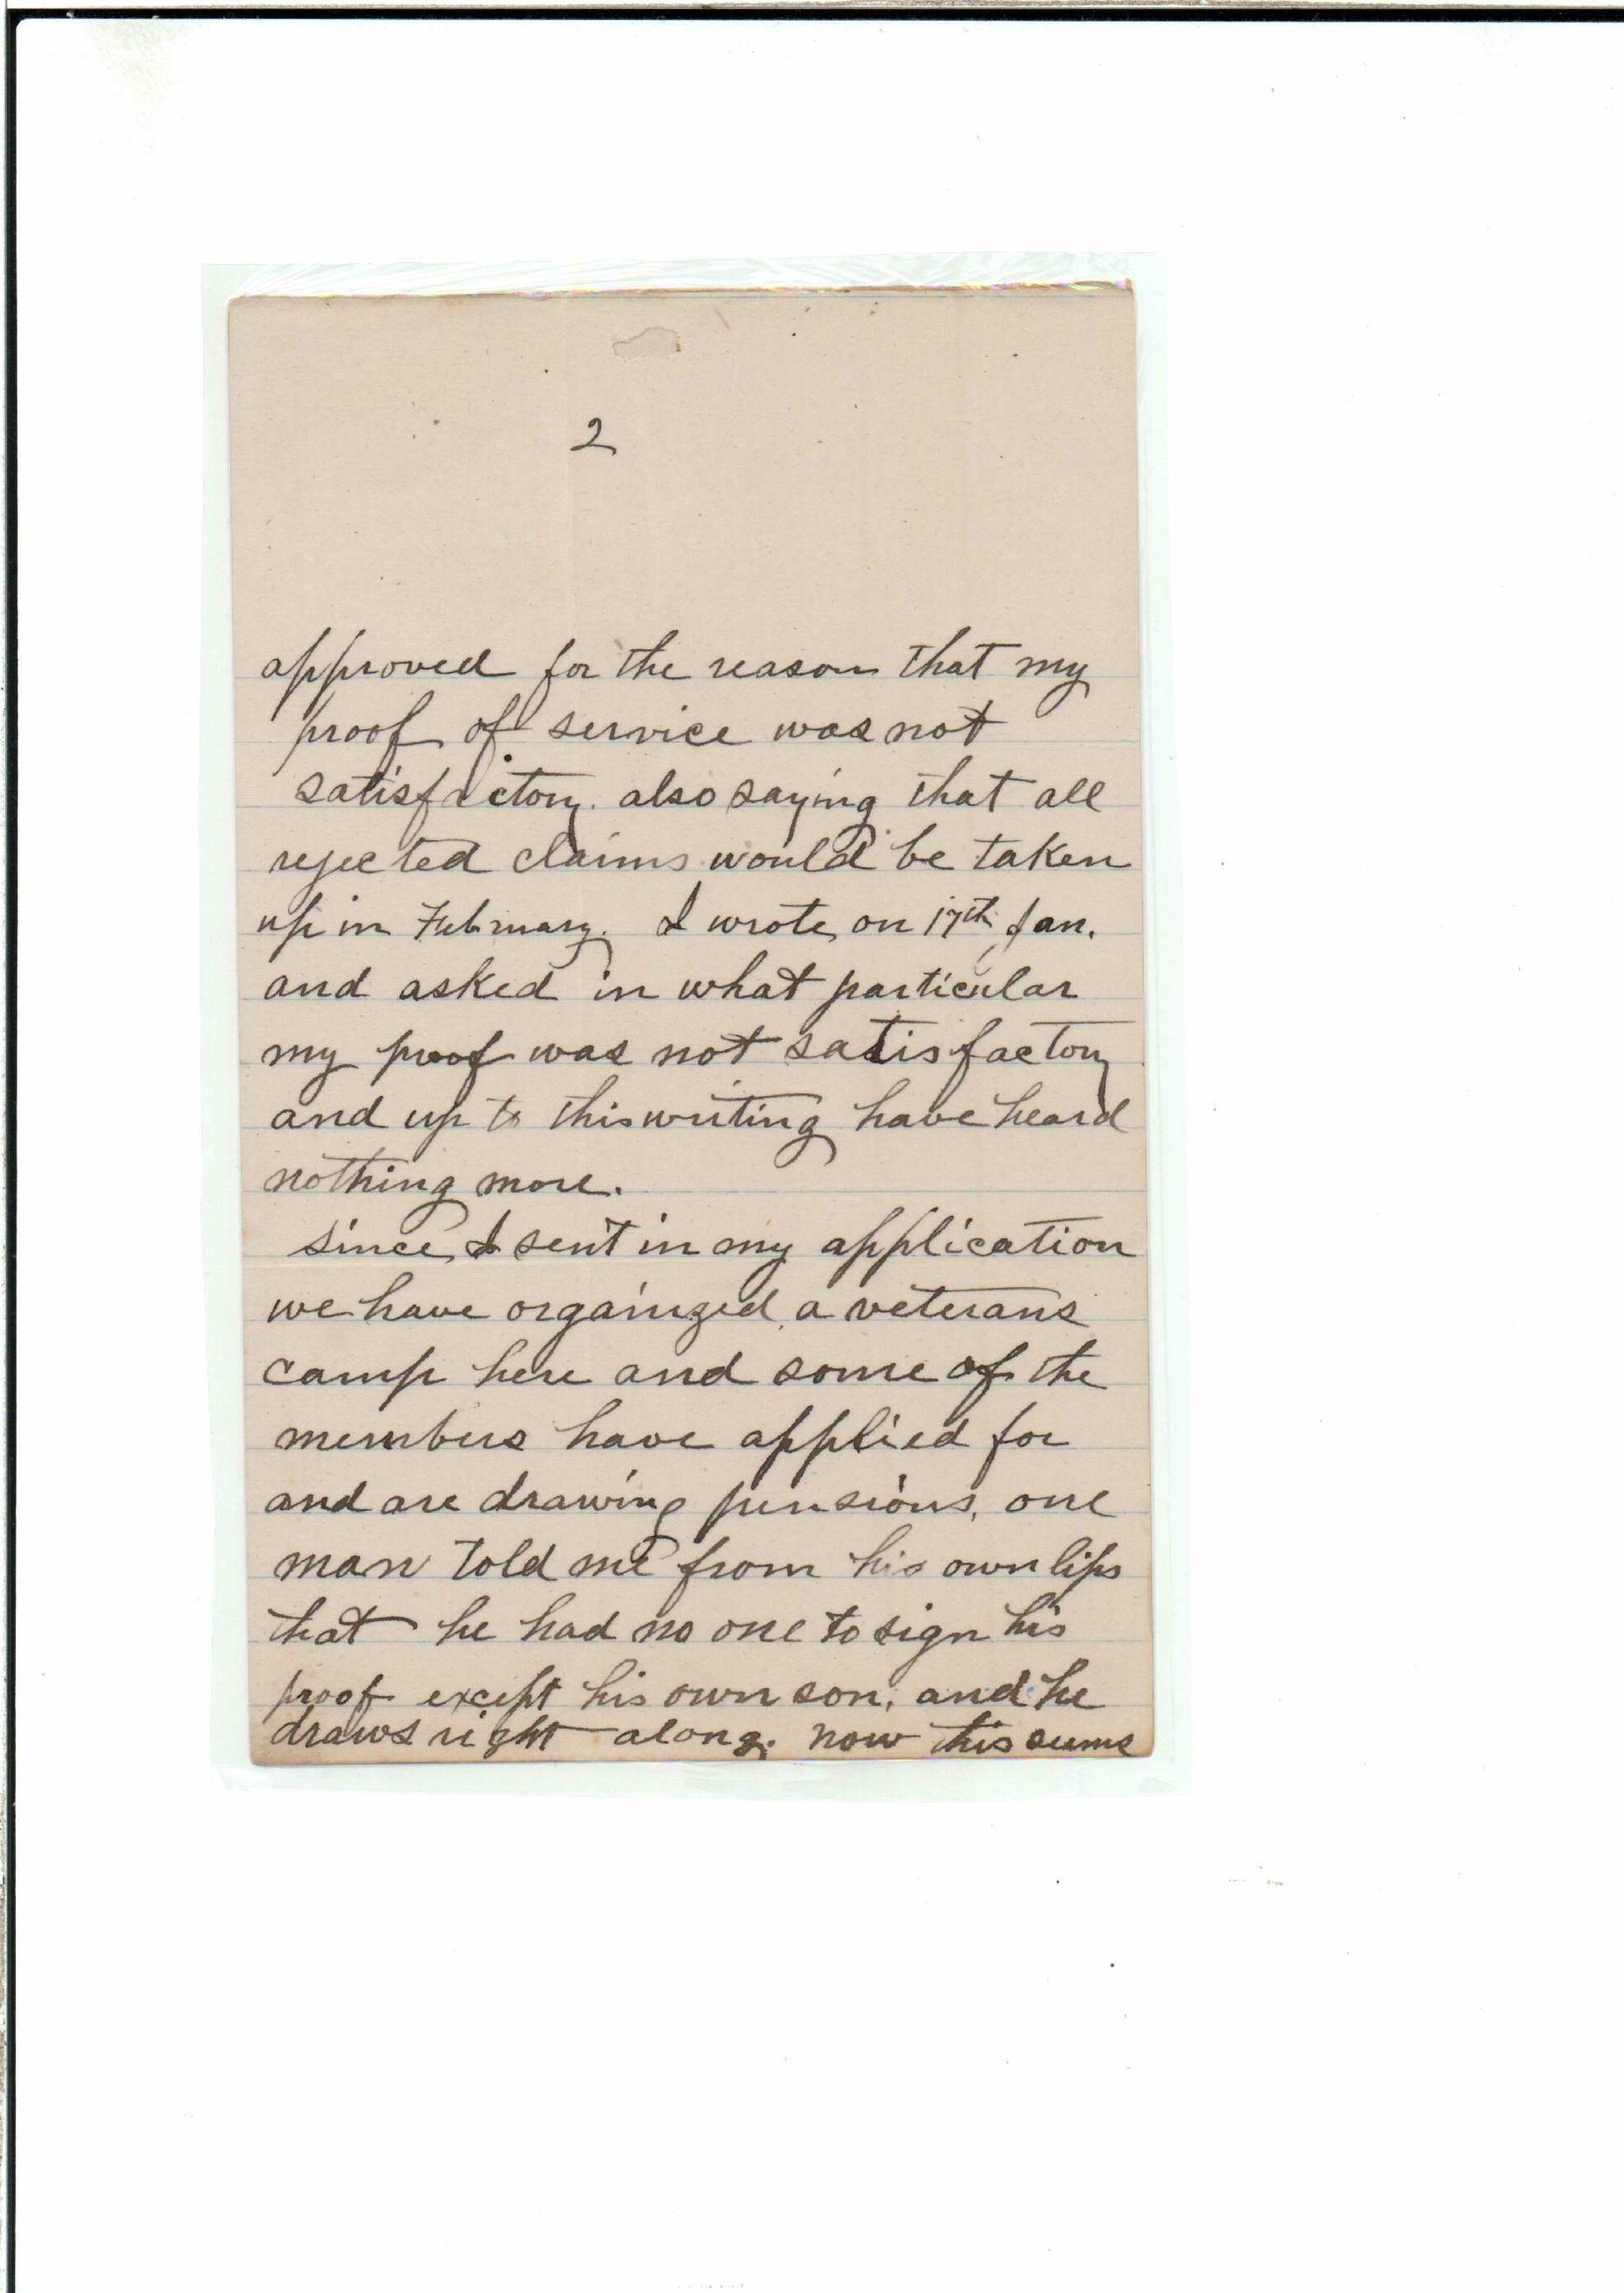 2
approved for the reason that my
proof of service was not
satisfactory. also saying that all
rejected claims would be taken
up in February. I wrote on 17th Jan.
and asked in what particular
my proof was not satisfactory
and up to this writing have heard
nothing more.
since I sent in my application
we have organized a veterans
camp here and some of the
members have applied for
and are drawing pensions, one
man told me from his own lips
that he had no one to sign his
proof except his own son, and he
draws right along. now this seems